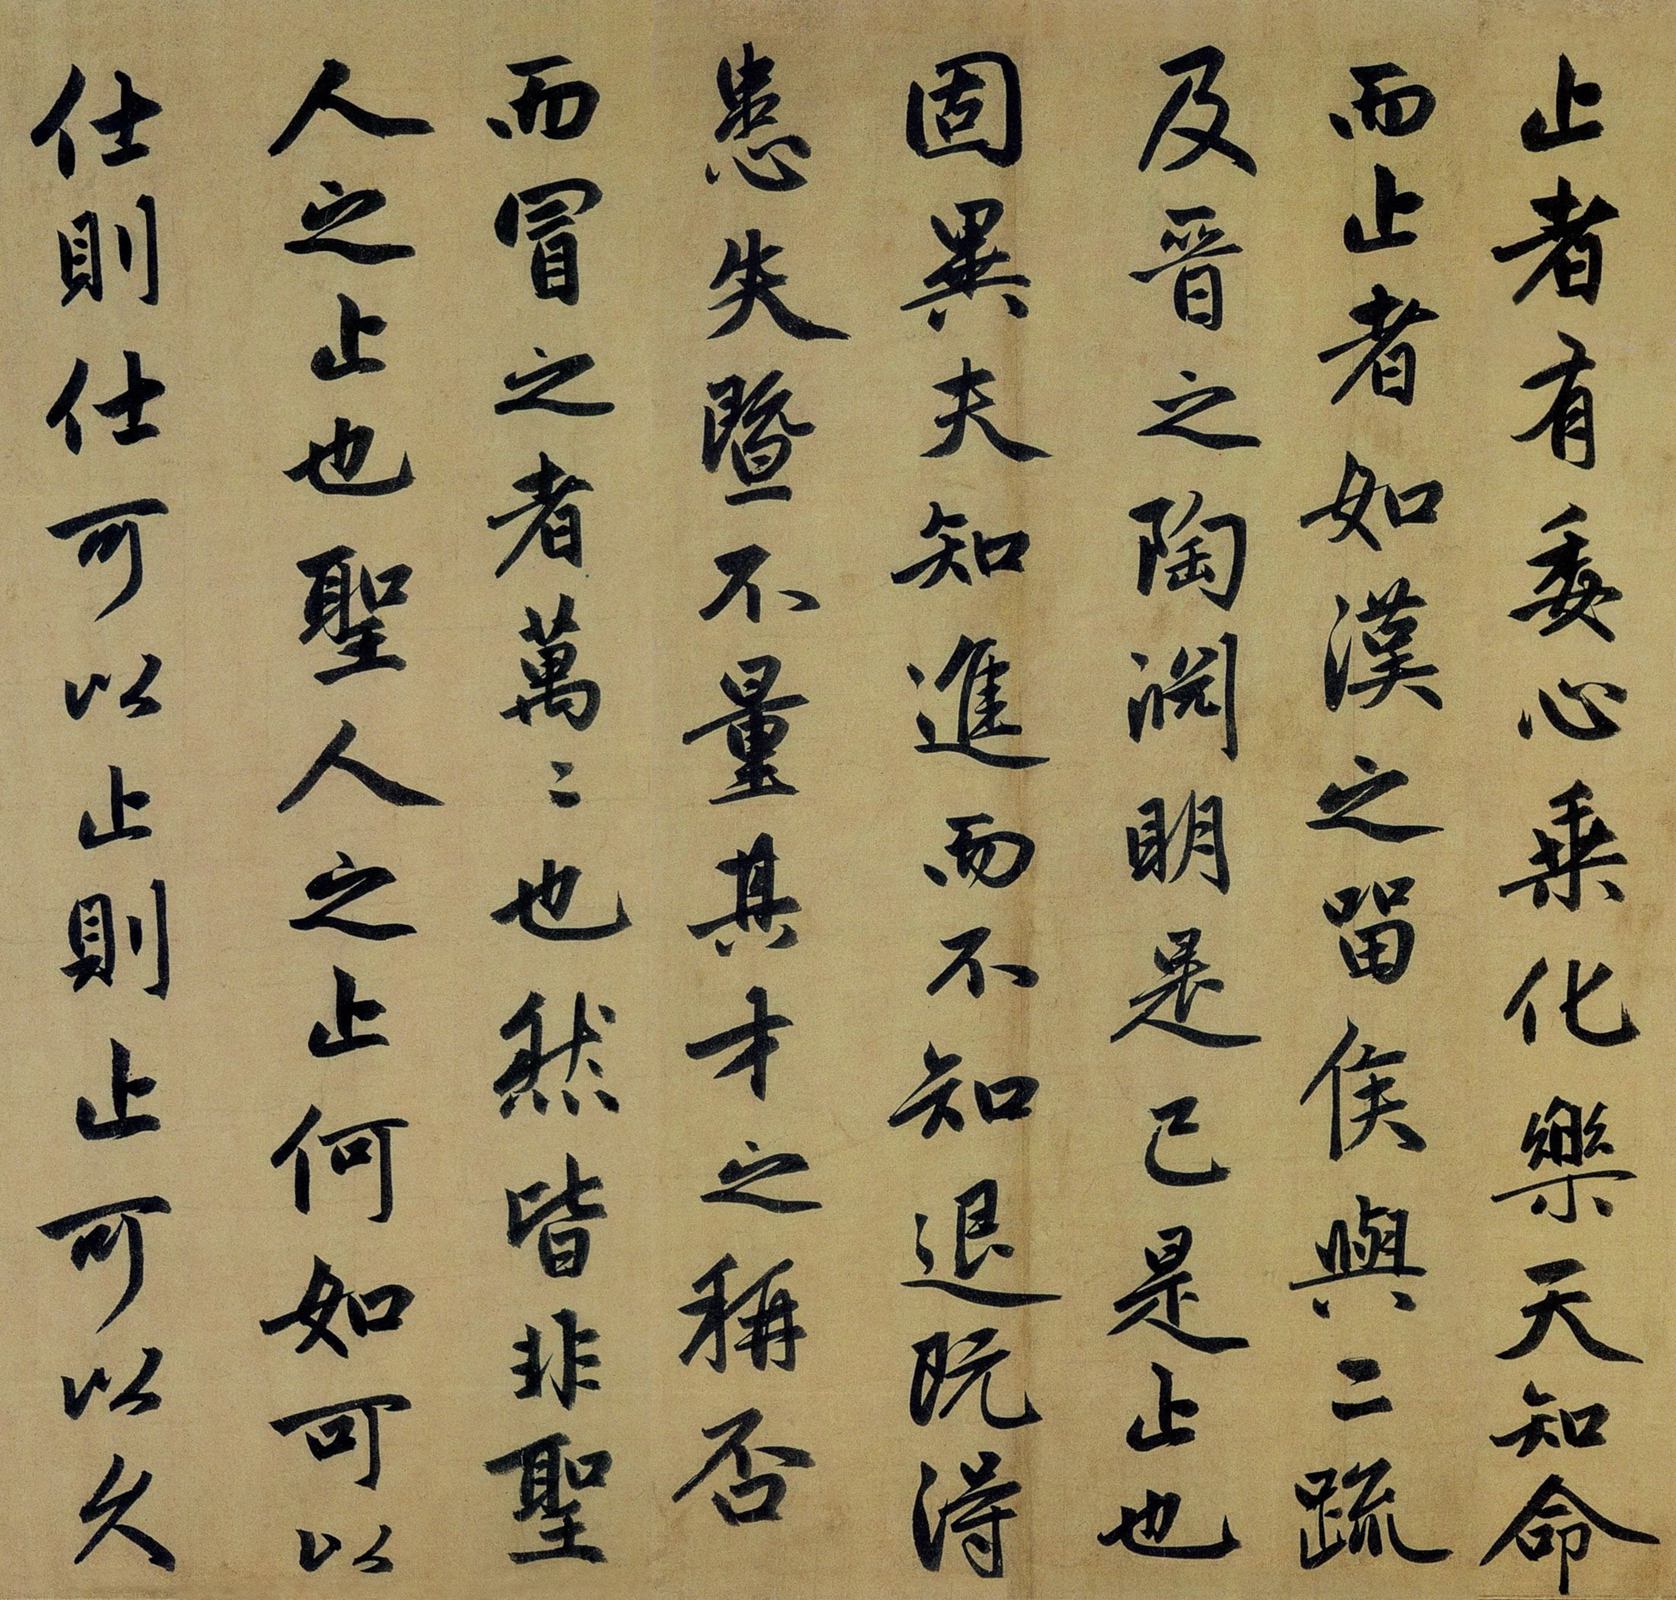 止者有委心乘化樂天知命
而止者如漢之留侯與二疏
及晉之陶淵明是已是止也
固異夫知進而不知退既得
患失暨不量其才之稱否
而冒之者萬〻也然皆非聖
人之止也聖人之止何如可以
仕則仕可以止則止可以久